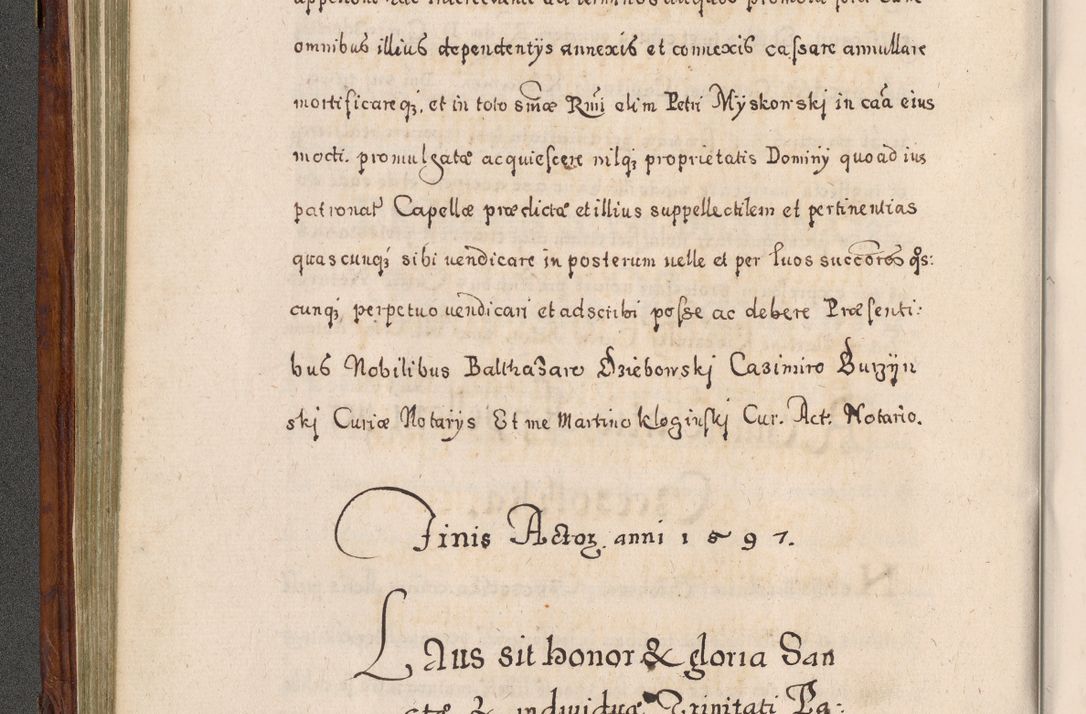 omnibus illius dependentijs annexis et connexis cassare annullare
mortificareq3, et in toto smæ Rmi olim Petri Myskowskj in caa eius
mocti. promulgatæ acquiescere nilq3 proprietatis Dominij quoad ius
patronat9 Capellæ prædictæ et illius suppellectilem et pertinentias
quascunq3 sibi uendicare in posterum uelle et per suos succores qs:
cunq3 perpetuo uendicari et adscribi posse ac debere Præsenti:
bus Nobilibus Balthasare Dziebowskj Casimiro Burzÿn
skj Curiæ Notarijs Et me Martino Kloginskj Cur. Act. Notario.
Finis Actoꝝ anni 1597.
Laus sit honor & gloria San
ctæ & individuæ Trinitati Pa: